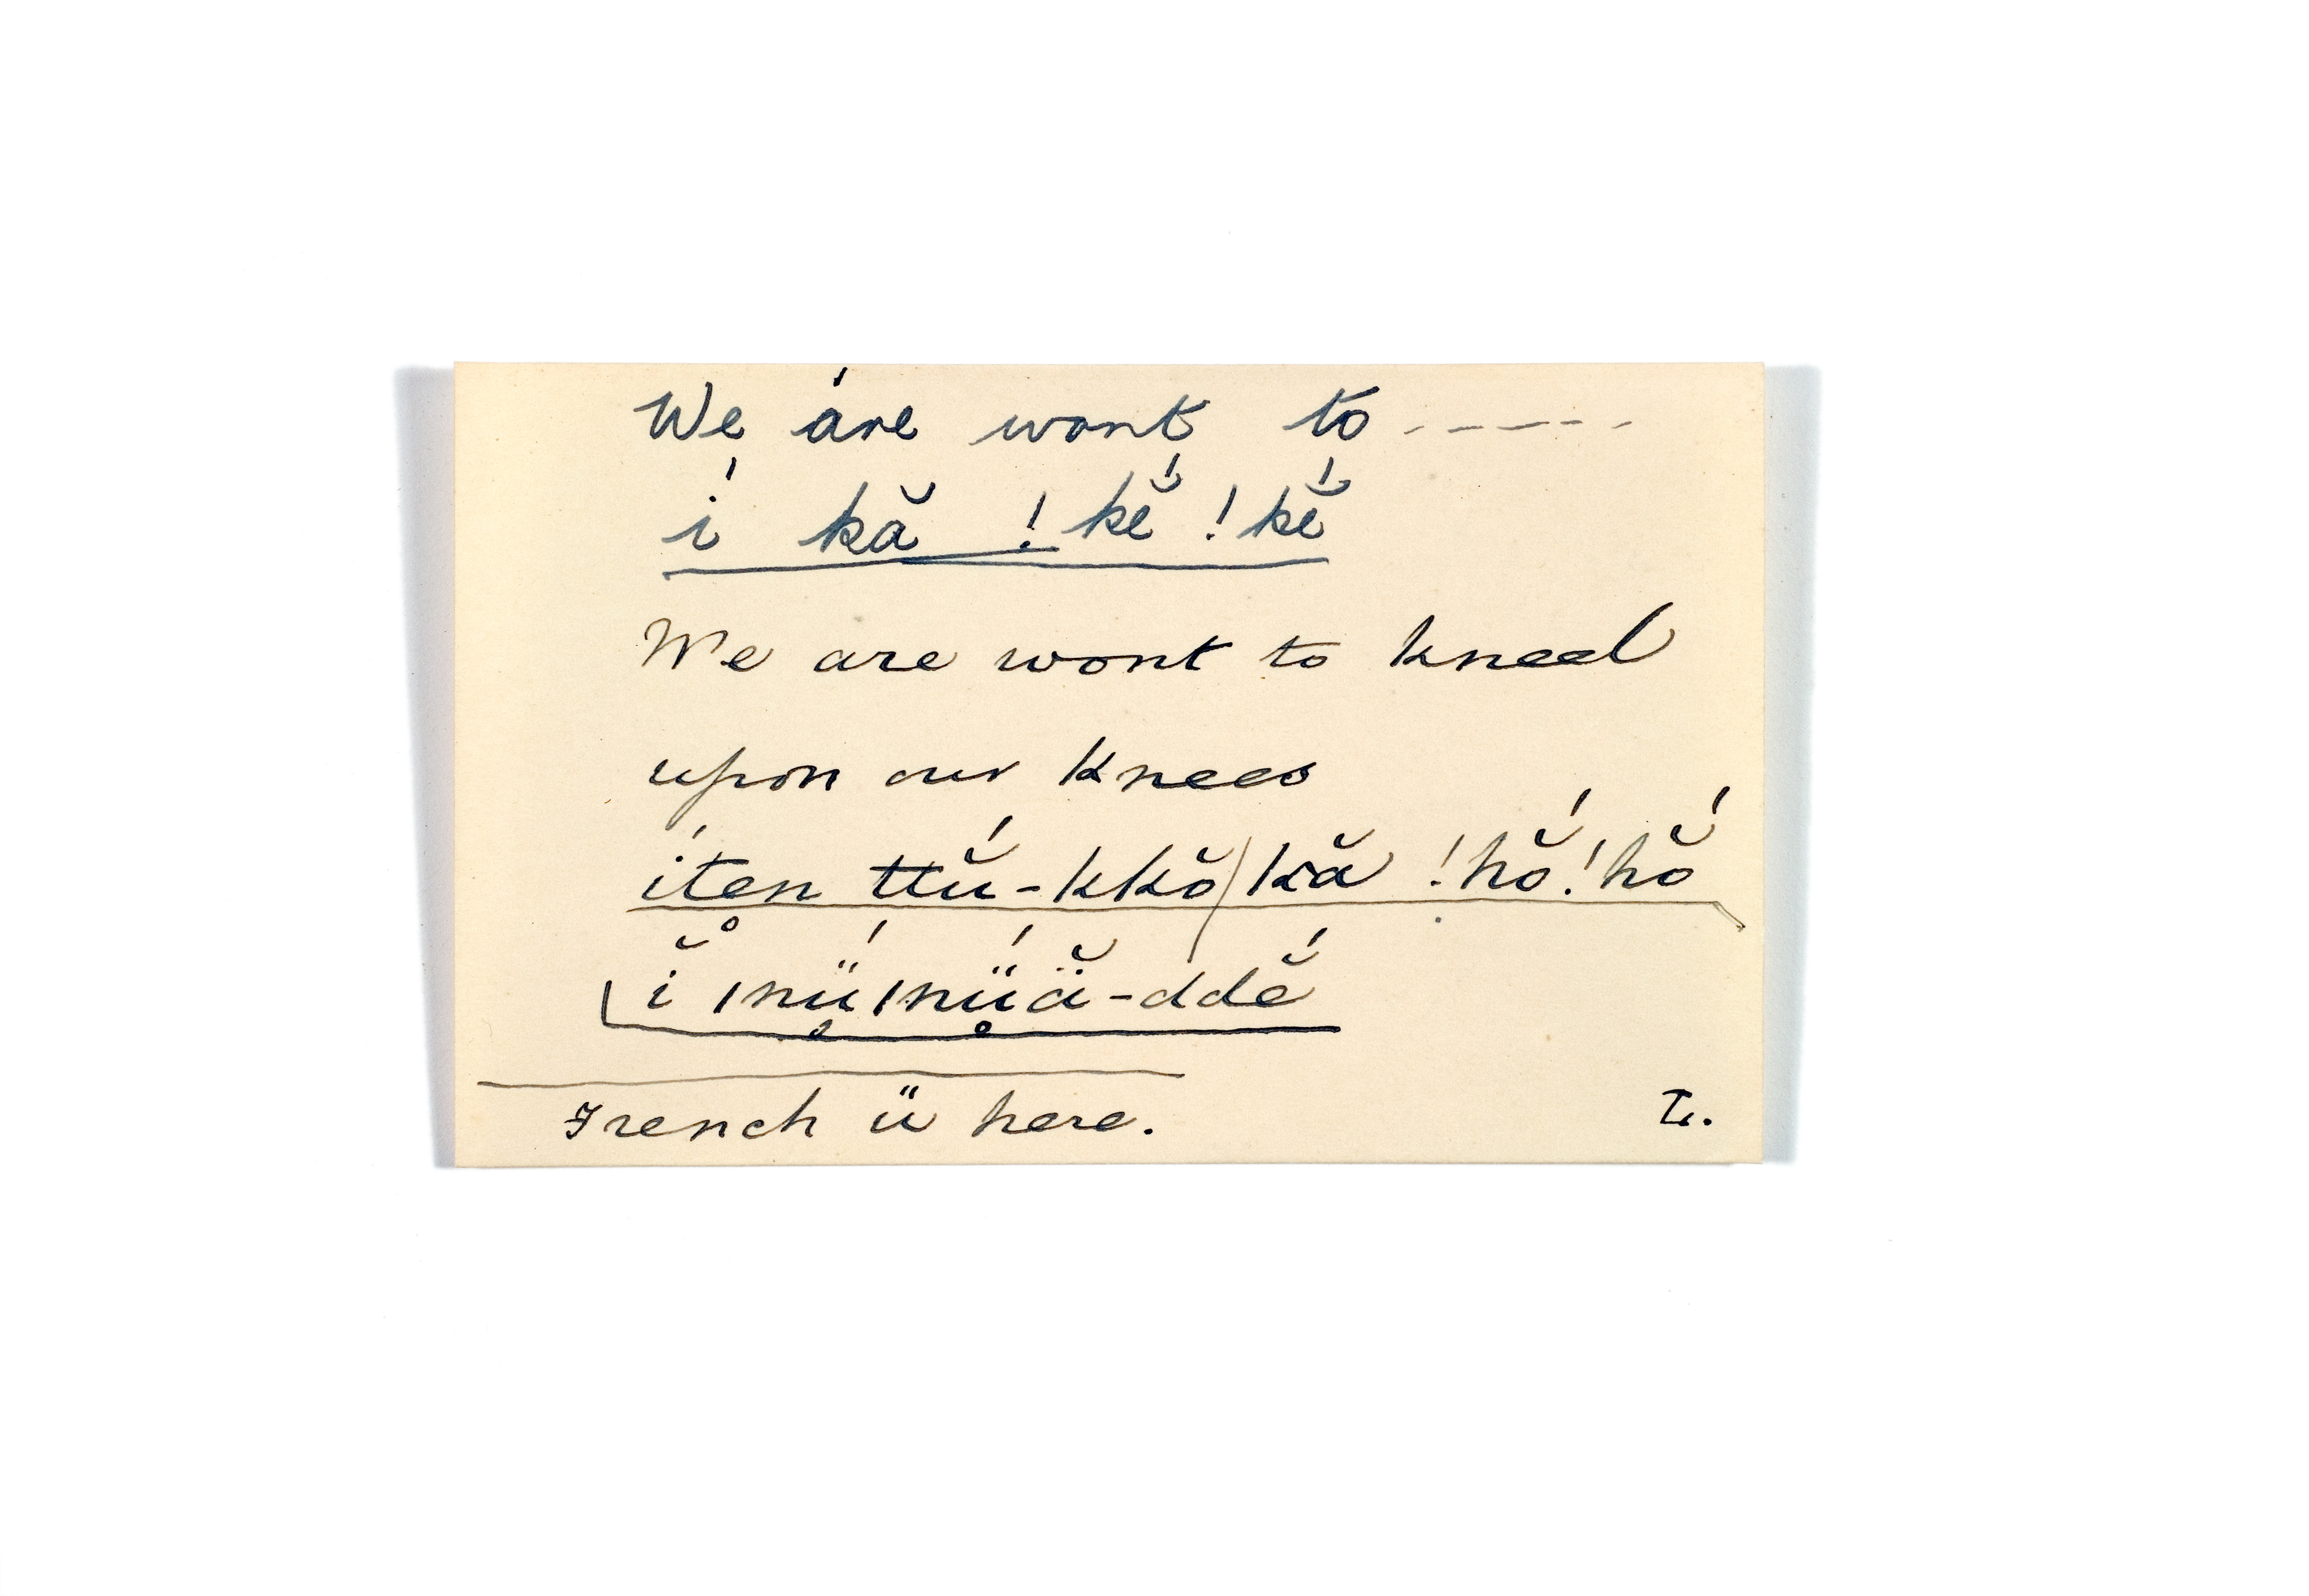 We áre wont to -----
í kă !kĕ́ !kĕ́
We are wont to kneel
upon our knees
íten ttŭ́-kkŏ/kă !hŏ́!hŏ́
ĭ̊ ǀnǘ̥ǀnǘ̥ä̆-ddĕ́
French ü here.
T.